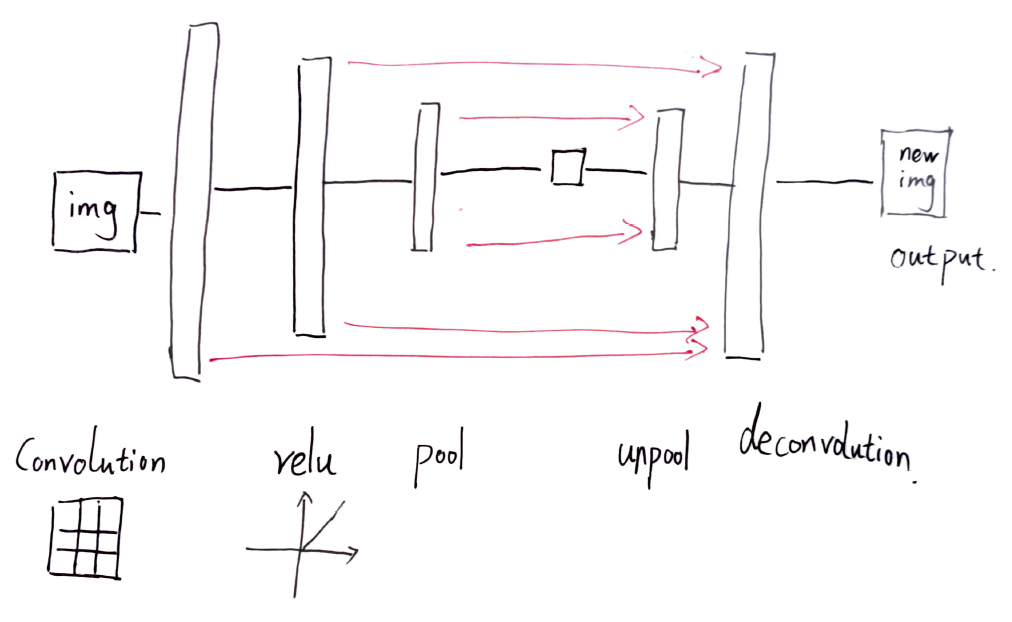 img
new
img
output.
Convolution
relu
pool
unpool
deconvolution.